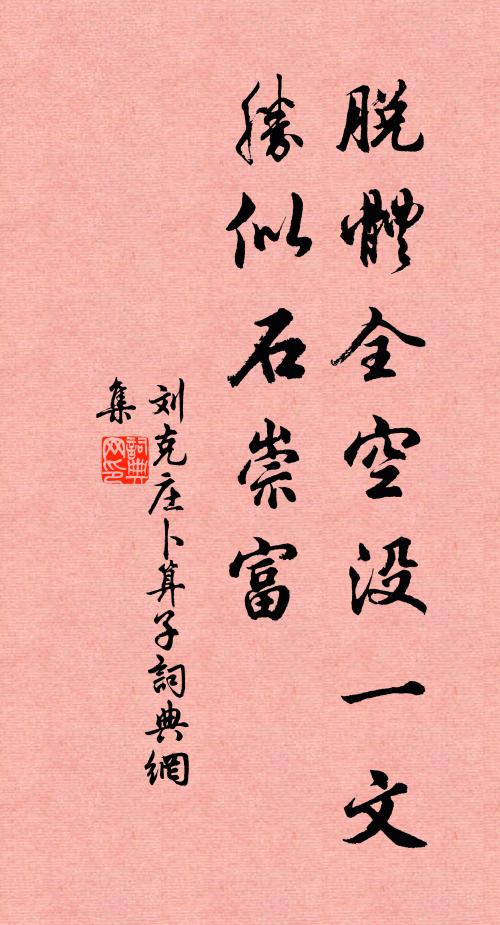 脫體全空没一文
勝似石崇富
刘克庄卜算子詞典網
集
詞典
网印